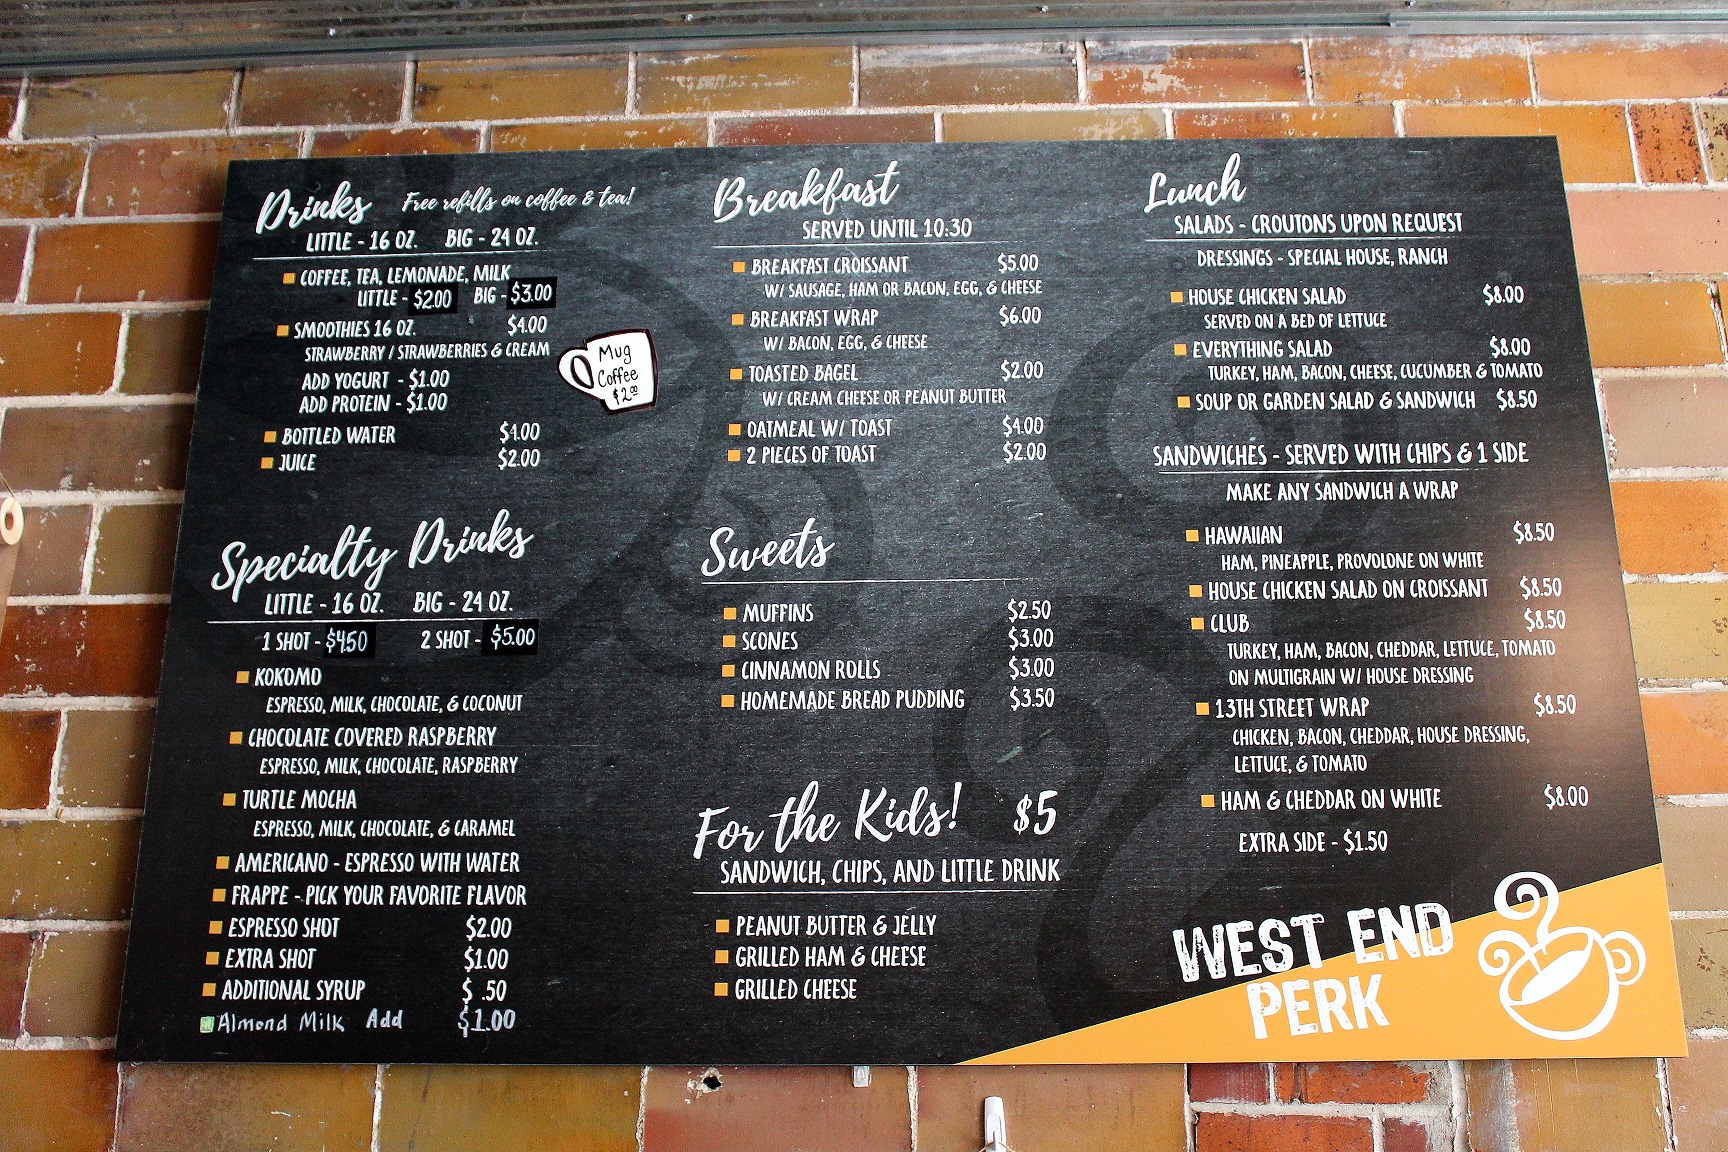 Drinks Free refills on coffee & tea!
LITTLE - 16 OZ. BIG - 24 OZ.
COFFEE, TEA, LEMONADE, MILK
LITTLE - $2.00 BIG - $3.00
SMOOTHIES 16 OZ. $4.00
STRAWBERRY / STRAWBERRIES & CREAM
ADD YOGURT - $1.00
ADD PROTEIN - $1.00
BOTTLED WATER $1.00
JUICE $2.00
Mug
Coffee
$2.00
Specialty Drinks
LITTLE - 16 OZ. BIG - 24 OZ.
1 SHOT - $4.50 2 SHOT - $5.00
KOKOMO
ESPRESSO, MILK, CHOCOLATE, & COCONUT
CHOCOLATE COVERED RASPBERRY
ESPRESSO, MILK, CHOCOLATE, RASPBERRY
TURTLE MOCHA
ESPRESSO, MILK, CHOCOLATE, & CARAMEL
AMERICANO - ESPRESSO WITH WATER
FRAPPE - PICK YOUR FAVORITE FLAVOR
ESPRESSO SHOT $2.00
EXTRA SHOT $1.00
ADDITIONAL SYRUP $ .50
Almond Milk Add $1.00
Breakfast
SERVED UNTIL 10:30
BREAKFAST CROISSANT $5.00
W/ SAUSAGE, HAM OR BACON, EGG, & CHEESE
BREAKFAST WRAP $6.00
W/ BACON, EGG, & CHEESE
TOASTED BAGEL $2.00
W/ CREAM CHEESE OR PEANUT BUTTER
OATMEAL W/ TOAST $4.00
2 PIECES OF TOAST $2.00
Sweets
MUFFINS $2.50
SCONES $3.00
CINNAMON ROLLS $3.00
HOMEMADE BREAD PUDDING $3.50
For the Kids! $5
SANDWICH, CHIPS, AND LITTLE DRINK
PEANUT BUTTER & JELLY
GRILLED HAM & CHEESE
GRILLED CHEESE
Lunch
SALADS - CROUTONS UPON REQUEST
DRESSINGS - SPECIAL HOUSE, RANCH
HOUSE CHICKEN SALAD $8.00
SERVED ON A BED OF LETTUCE
EVERYTHING SALAD $8.00
TURKEY, HAM, BACON, CHEESE, CUCUMBER & TOMATO
SOUP OR GARDEN SALAD & SANDWICH $8.50
SANDWICHES - SERVED WITH CHIPS & 1 SIDE
MAKE ANY SANDWICH A WRAP
HAWAIIAN $8.50
HAM, PINEAPPLE, PROVOLONE ON WHITE
HOUSE CHICKEN SALAD ON CROISSANT $8.50
CLUB $8.50
TURKEY, HAM, BACON, CHEDDAR, LETTUCE, TOMATO
ON MULTIGRAIN W/ HOUSE DRESSING
13TH STREET WRAP $8.50
CHICKEN, BACON, CHEDDAR, HOUSE DRESSING,
LETTUCE, & TOMATO
HAM & CHEDDAR ON WHITE $8.00
EXTRA SIDE - $1.50
WEST END
PERK